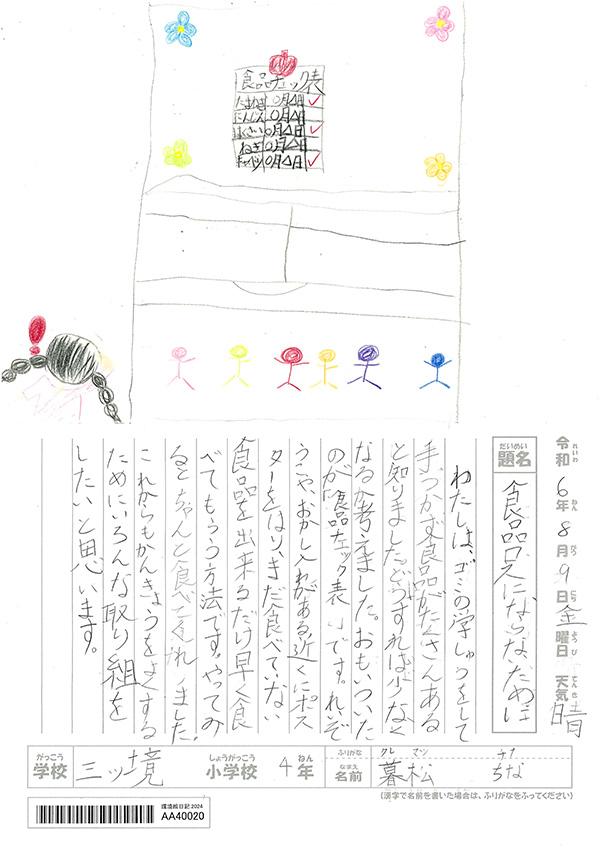 食品チェック表
たまねぎ 〇月△日 ✓
にんじん 〇月△日
はくさい 〇月△日 ✓
ねぎ 〇月△日
キャベツ 〇月△日 ✓
令和6年8月9日金曜日 天気 晴
れいわ ねん がつ にち ようび てんき
だいめい
題名 食品ロスにならないために
わたしは、ゴミの学しゅうをして
手つかず食品がたくさんある
と知りました。どうすれば少なく
なるか考えました。おもいついた
のが「食品チェック表」です。れいぞ
うこや、おかし入れがある近くにポス
ターをはり、まだ食べていない
食品を出来るだけ早く食
べてもらう方法です。やってみ
るとちゃんと食べてくれました。
これからもかんきょうをよくする
ためにいろんな取り組を
したいと思います。
がっこう しょうがっこう ねん ふりがな クレ マツ チナ
学校 三ッ境 小学校 4年 なまえ 名前 暮松 ちな
(漢字で名前を書いた場合は、ふりがなをふってください)
環境絵日記2024
AA40020